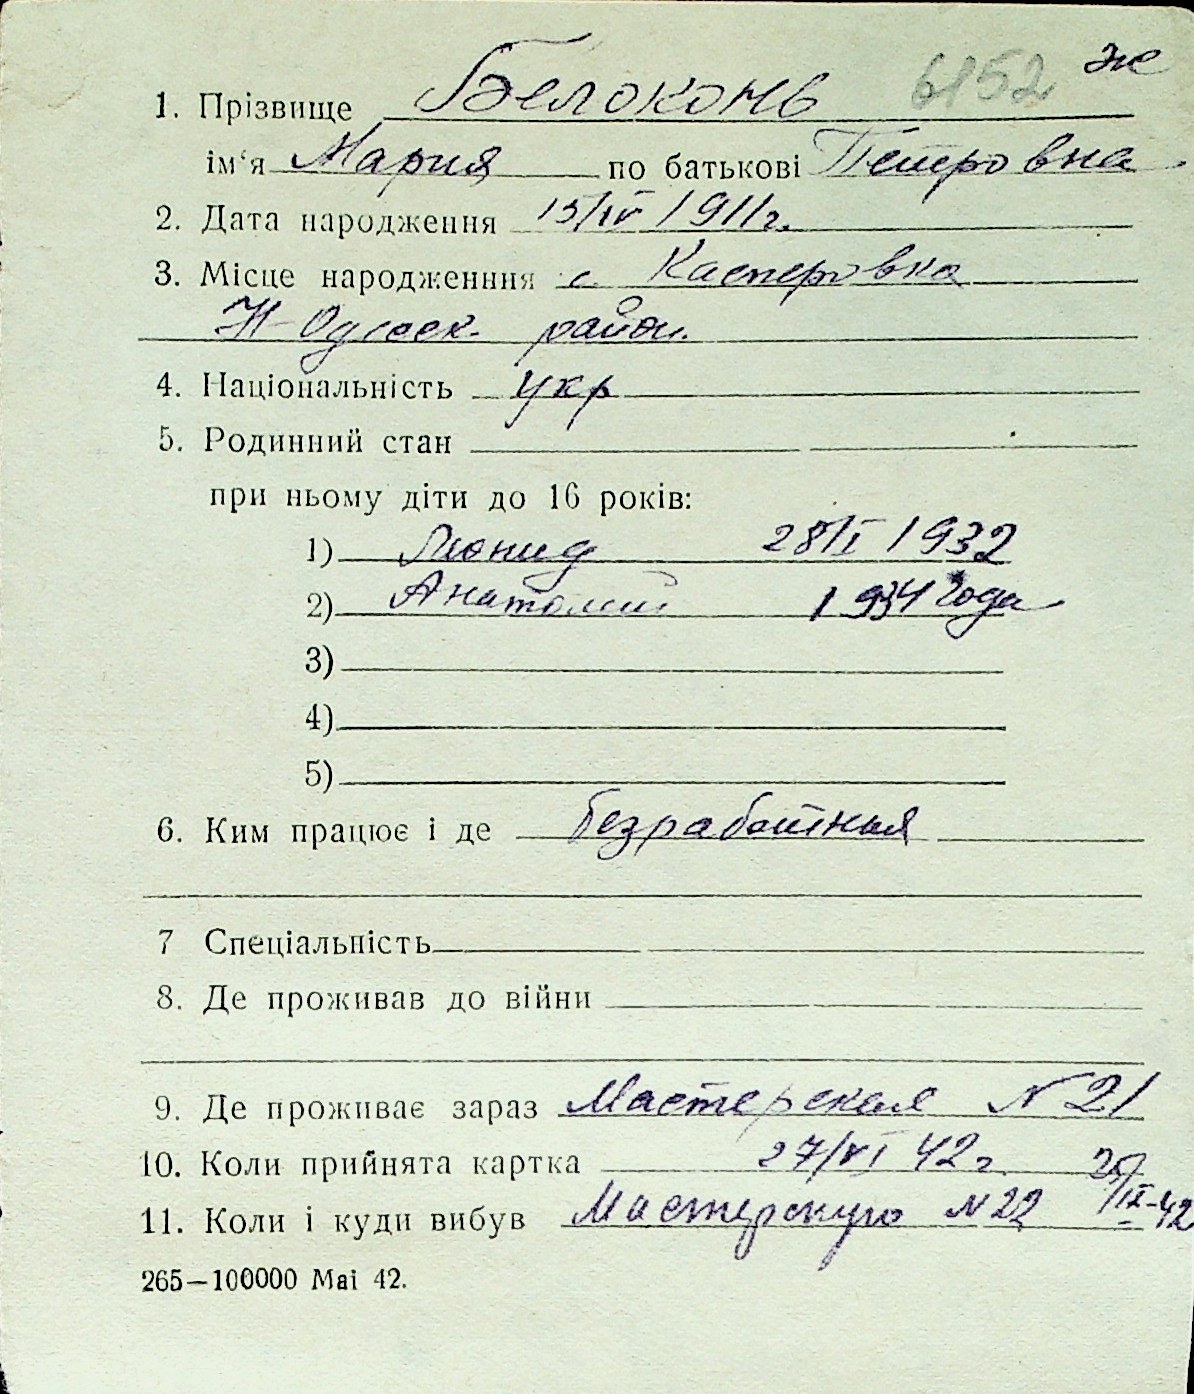 6152 же
1. Прізвище Белоконь
ім‘я Мария по батькові Петровна
2. Дата народження 15/IV 1911г.
3. Місце народженння с. Касперовка
Н-Одесск. район.
4. Національність укр
5. Родинний стан
при ньому діти до 16 років:
1) Леонид 28/I 1932
2) Анатолий 1934 года
3)
4)
5)
6. Ким працює і де безработная
7 Спеціальність
8. Де проживав до війни
9. Де проживає зараз Мастерская N 21
10. Коли прийнята картка 27/VI 42г.
11. Коли і куди вибув Мастерскую N 22 25/IX-42
265—100000 Mai 42.